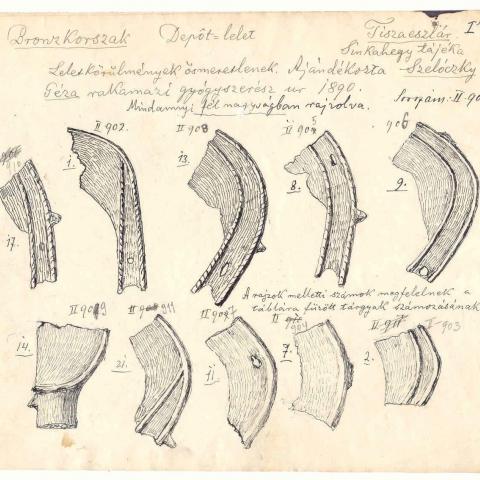 Bronzkorszak Depôt-lelet Tiszaeszlár. I
Sinkahegy tájéka
Leletkörülmények ösmeretlenek. Ajándékozta Szelóczky
Géza rakamazi gyógyszerész ur 1890.
Mindannyi fél nagyságban rajzolva.
II 902. II 908 II 905 906
1. 13. 8. 9.
17.
A rajzok melletti számok megfelelnek a
táblára fűzött tárgyak számozásának
II 909 II 911 II 907 II 904 II 911 II 903
14. 21. 11. 7. 2.